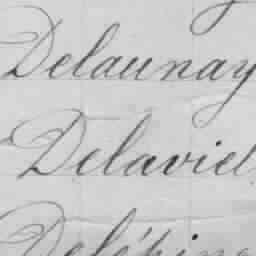 Delaunay
Delaviel
Delépine